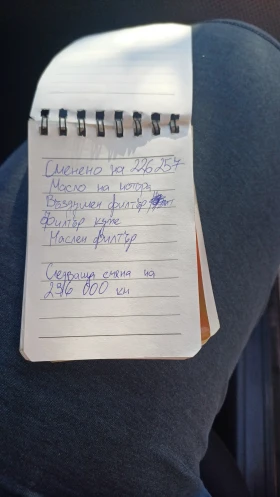 Сменено на 226257
Масло на мотора
Въздушен филтър
Филтър купе
Маслен филтър
Следваща смяна на
236 000 км